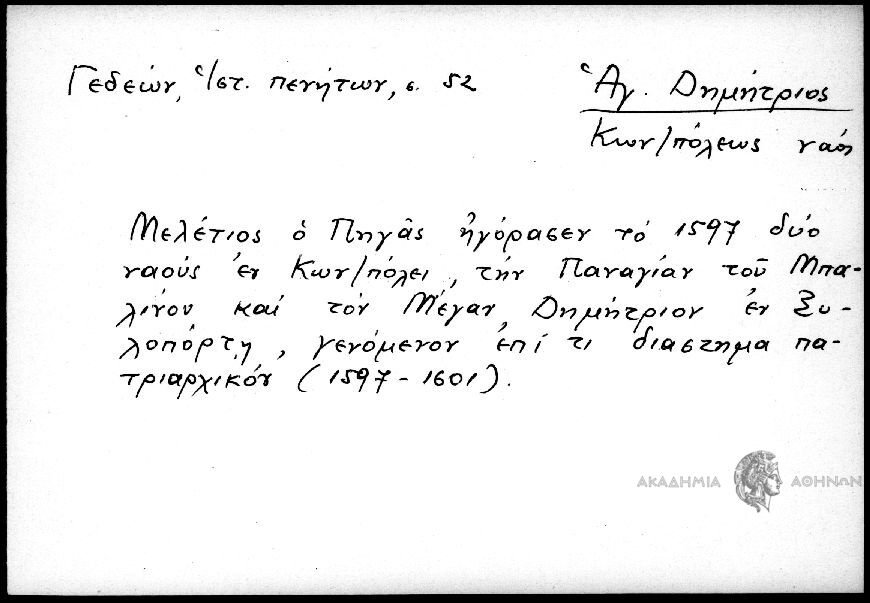 Γεδεών, Ἱστ. πενήτων, σ. 52
Ἅγ. Δημήτριος
Κων/πόλεως ναός
Μελέτιος ὁ Πηγᾶς ἠγόρασεν τό 1597 δύο
ναούς ἐν Κων/πόλει, τήν Παναγίαν τοῦ Μπα-
λίνου καί τόν Μέγαν Δημήτριον ἐν Ξυ-
λοπόρτῃ, γενόμενον ἐπί τι διάστημα πα-
τριαρχικόν (1597-1601).
ΑΚΑΔΗΜΙΑ ΑΘΗΝΩΝ